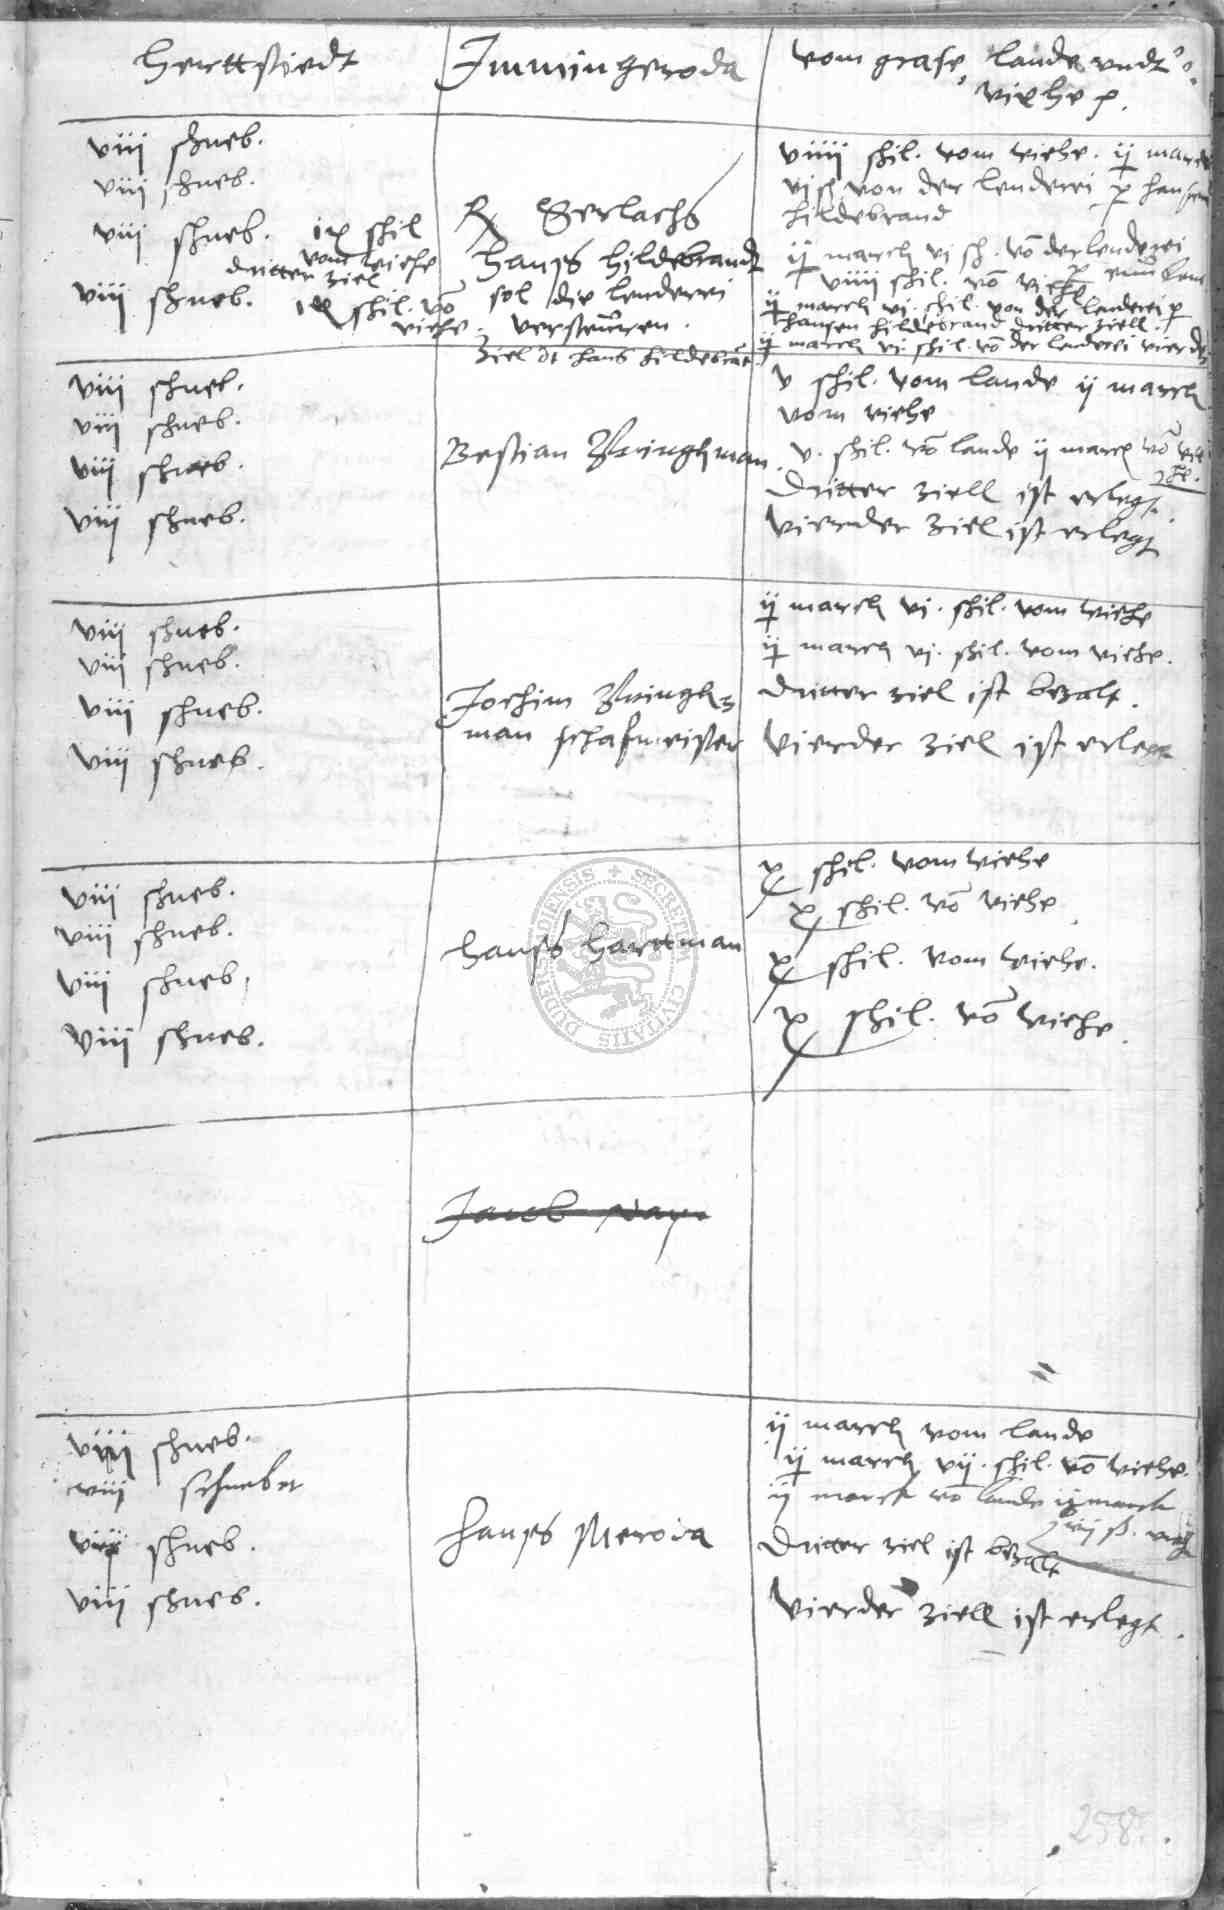 herttstedt
Immingeroda
vom grase, lande undt
viehe p.
viii schneb.
viii schneb.
viii schneb. ix schil
vom viehe
dritter ziel
viii schneb. ix schil. vō
viehe.
Gerlachs
hanss hildebrandt
sol die lenderei
versteuren.
ziel dt hans hildebrant
viiii schil. vom viehe. ij march
vi sch von der lenderei p hansen
hildebrand
ij march vi sch. vō der lenderei
viiii schil. vō viehe
ij march vi. schil. von der lenderei p
hansen hildebrand dritter ziell.
ij march vi. schil. vō der lenderei vierde
viii schneb.
viii schneb.
viii schneb.
viii schneb.
Bestian Bringhman.
v schil. vom lande ij march
vom viehe
v. schil. vō lande ij march vō viehe
Dritter ziell ist erlegt.
Vierder ziel ist erlegt
viii schneb.
viii schneb.
viii schneb.
viii schneb.
Jochim Bringh
man schafmeister
ij march vi. schil. vom viehe
ij march vj. schil. vom viehe.
Dritter ziel ist bezalt.
Vierder ziel ist erlegt
viii schneb.
viii schneb.
viii schneb.
viii schneb.
hanss harttman
x schil. vom viehe
x schil. vō viehe
x schil. vom viehe.
x schil. vō viehe.
SECRETUM CIVITATIS DUDERSTADIENSIS
Jacob
viii schneb.
viii schneber
viii schneb.
viii schneb.
Hanss Meroda
ij march vom lande
ij march vij. schil. vō viehe.
ij marck vō lande ij marck
vij ß. viehe
Dritter ziel ist bezalt
Vierder ziell ist erlegt.
258.